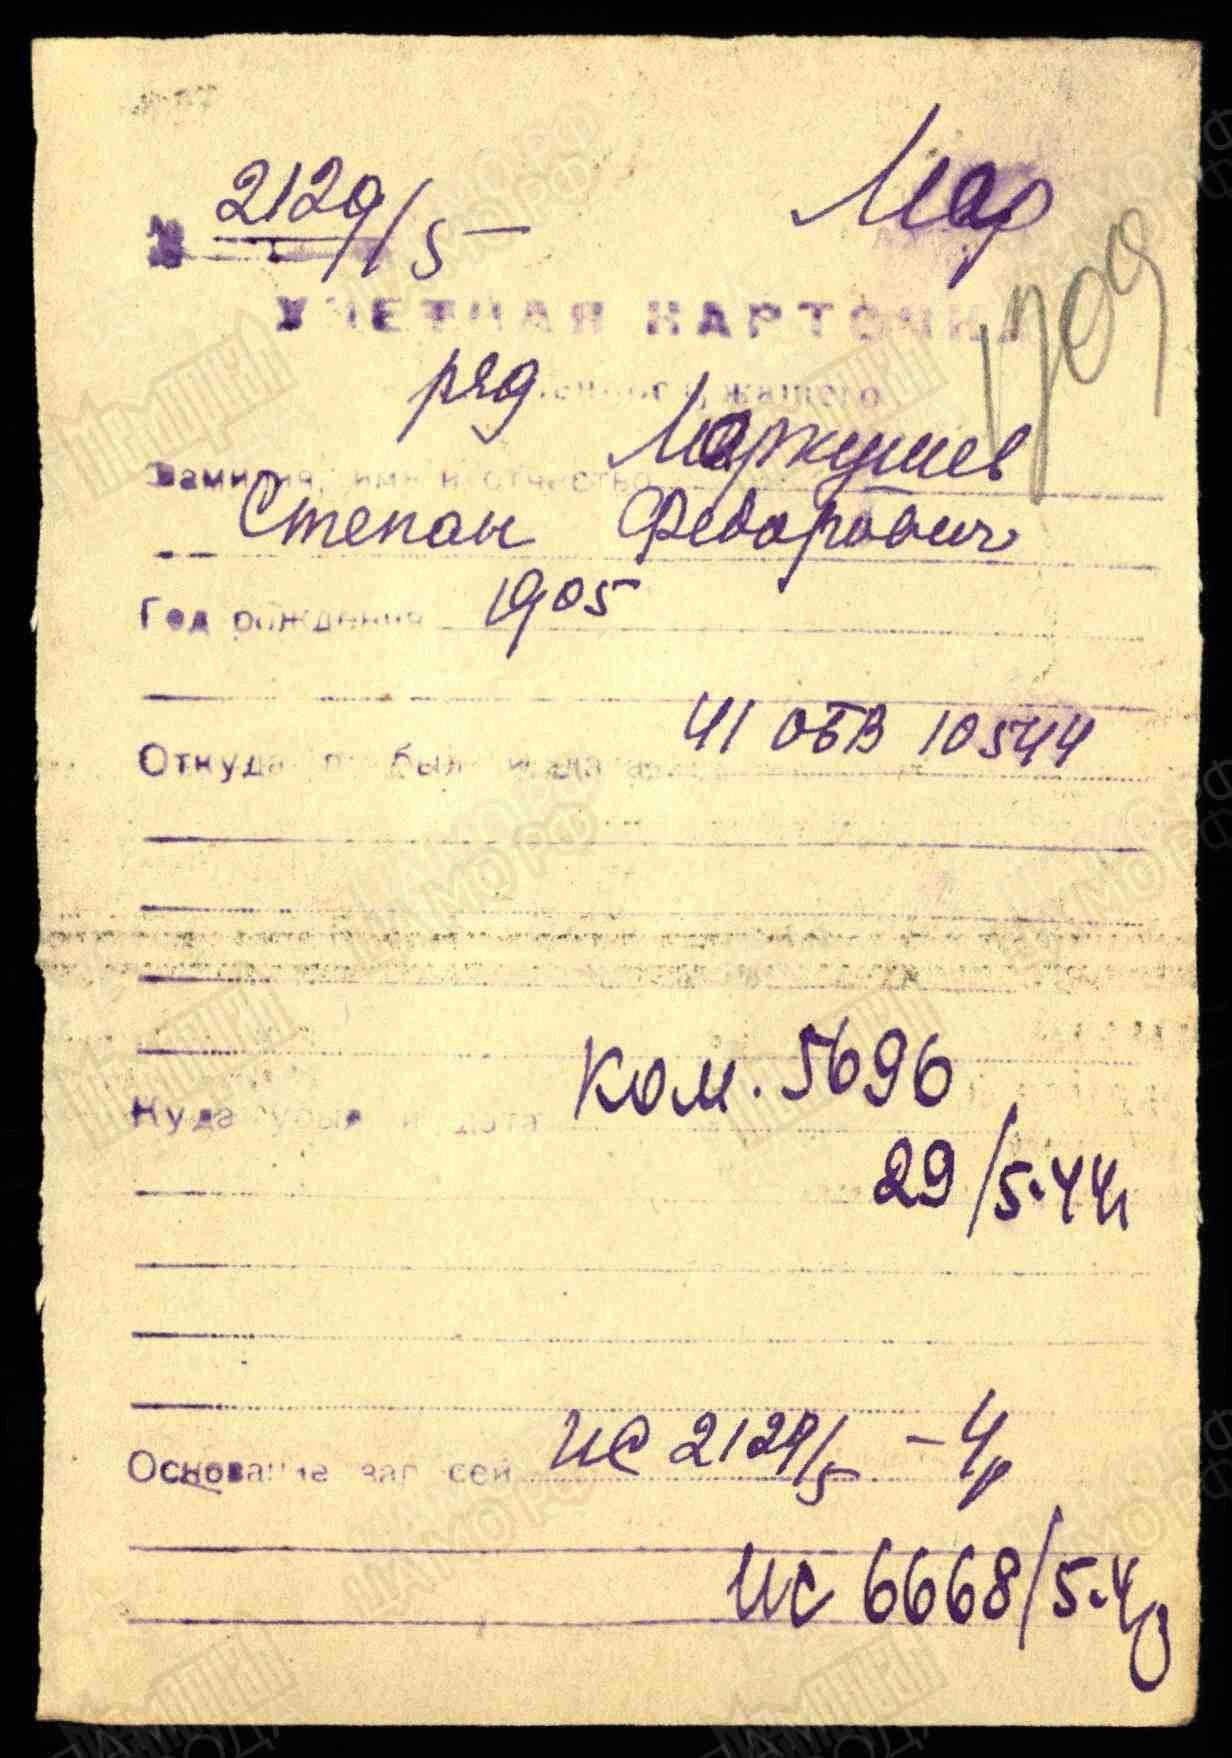 Мар
№ 2129/5 -
УЧЕТНАЯ КАРТОЧКА
1709
ряд военнослужащего
Фамилия, имя и отчество Маркушев
Степан Федорович
Год рождения 1905
Откуда прибыл и дата 41 ОБВ 10544
Куда убыл и дата ком. 5696
29/5.44
Основание записей ИС 2129/5 - 4
ИС 6668/5.4